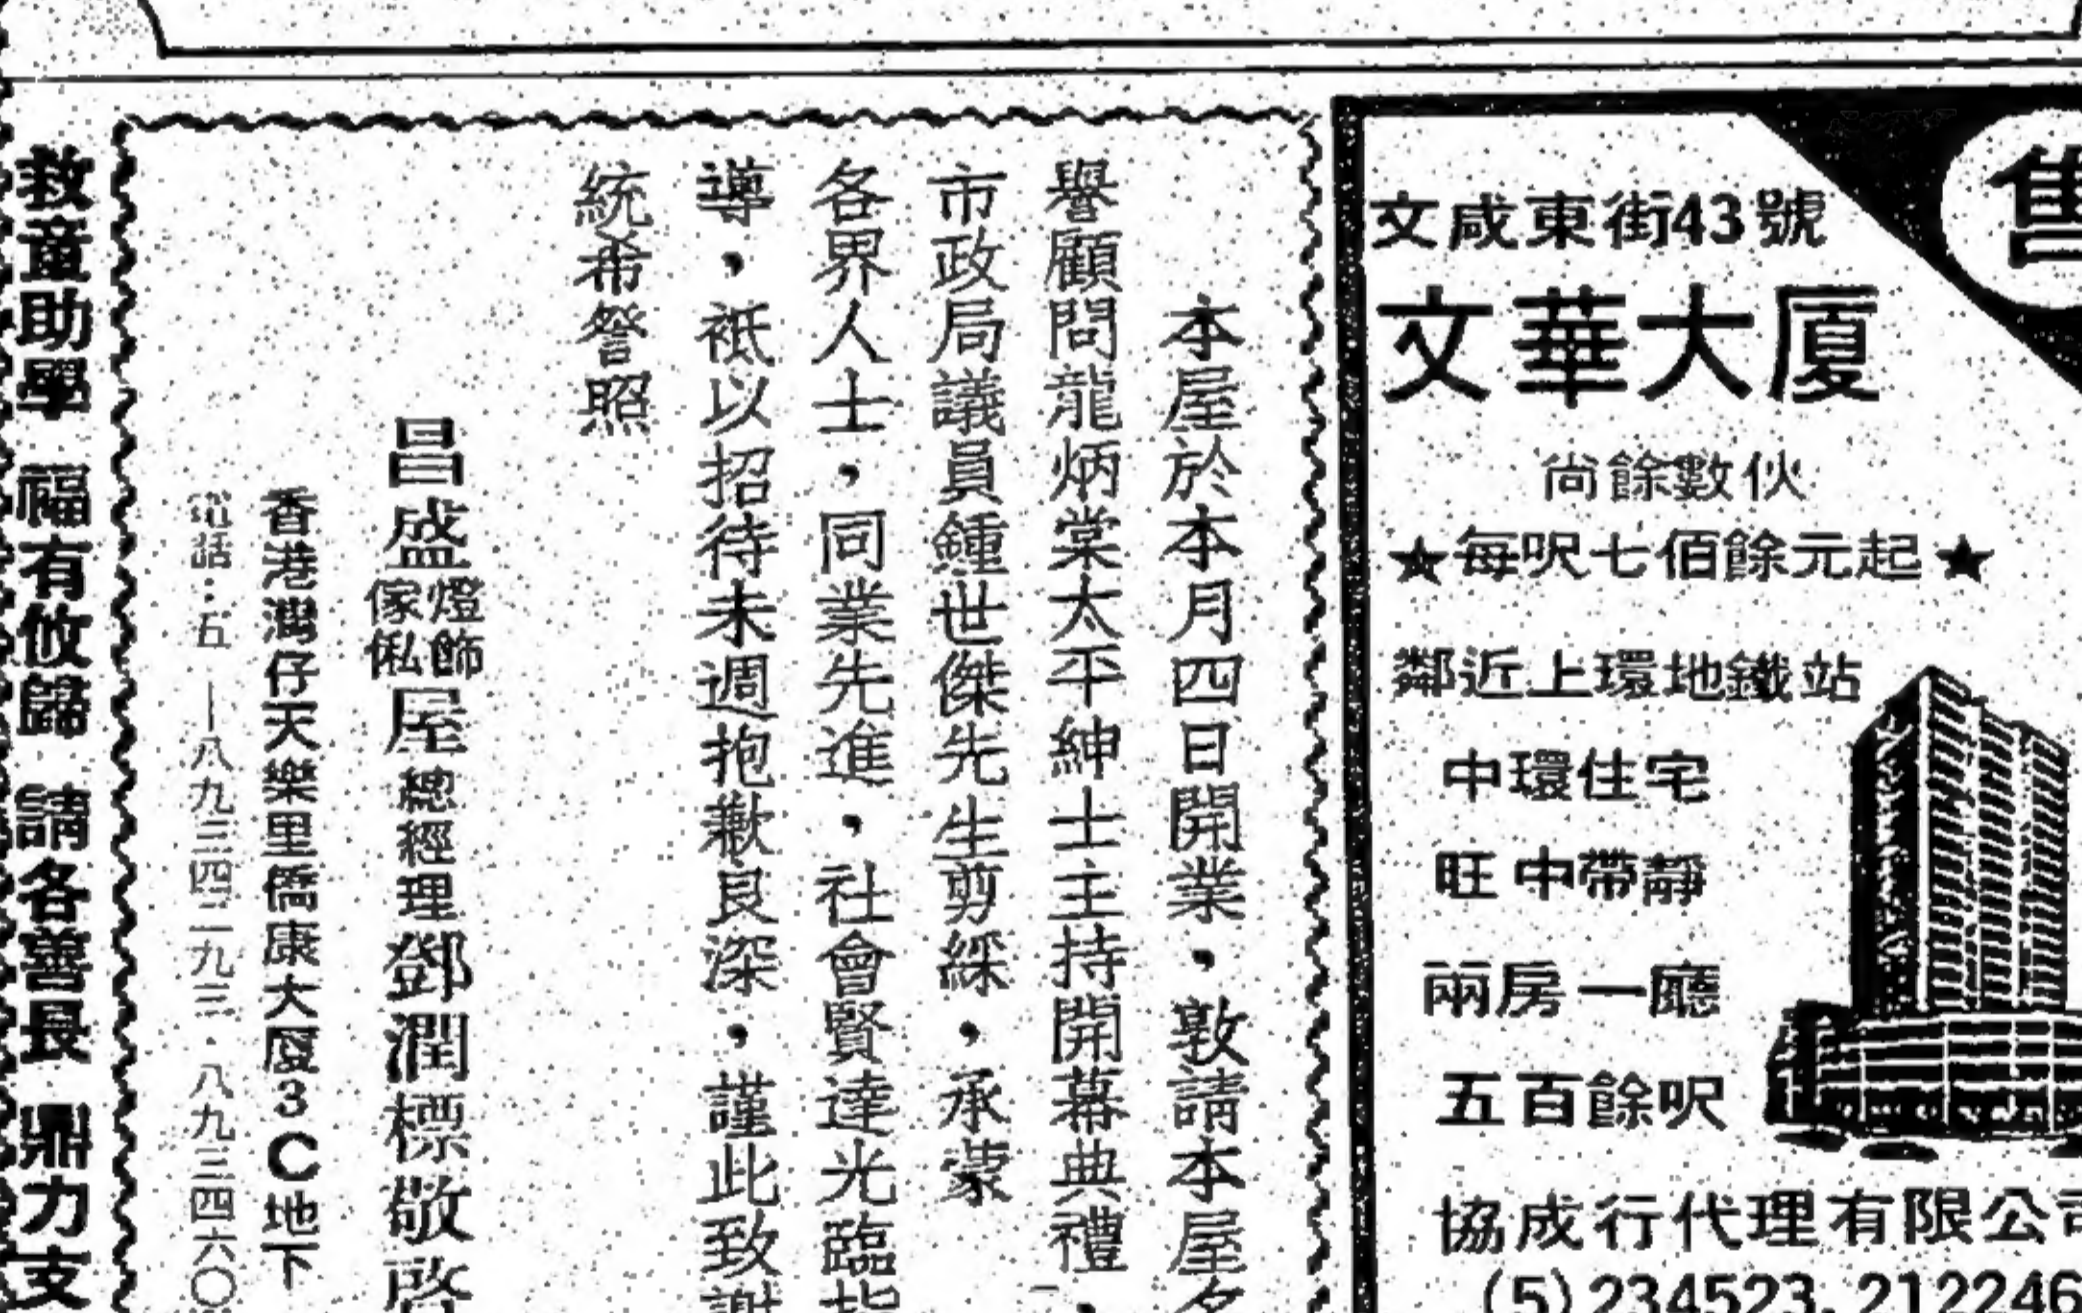 售
文咸東街43號
文華大厦
尚餘數伙
★每呎七佰餘元起★
鄰近上環地鐵站
中環住宅
旺中帶靜
兩房一廳
五百餘呎
協成行代理有限公司
(5)234523, 212246
本屋於本月四日開業，敦請本屋名
譽顧問龍炳棠太平紳士主持開幕典禮、
市政局議員鍾世傑先生剪綵，承蒙
各界人士，同業先進，社會賢達光臨指
導，祗以招待未週抱歉良深，謹此致謝
統希詧照
昌盛燈飾傢俬屋總經理鄧潤標敬啓
香港灣仔天樂里僑康大厦3C地下
電話：五—八九三四二九三·八九三四六〇
救童助學 福有攸歸 請各善長 鼎力支